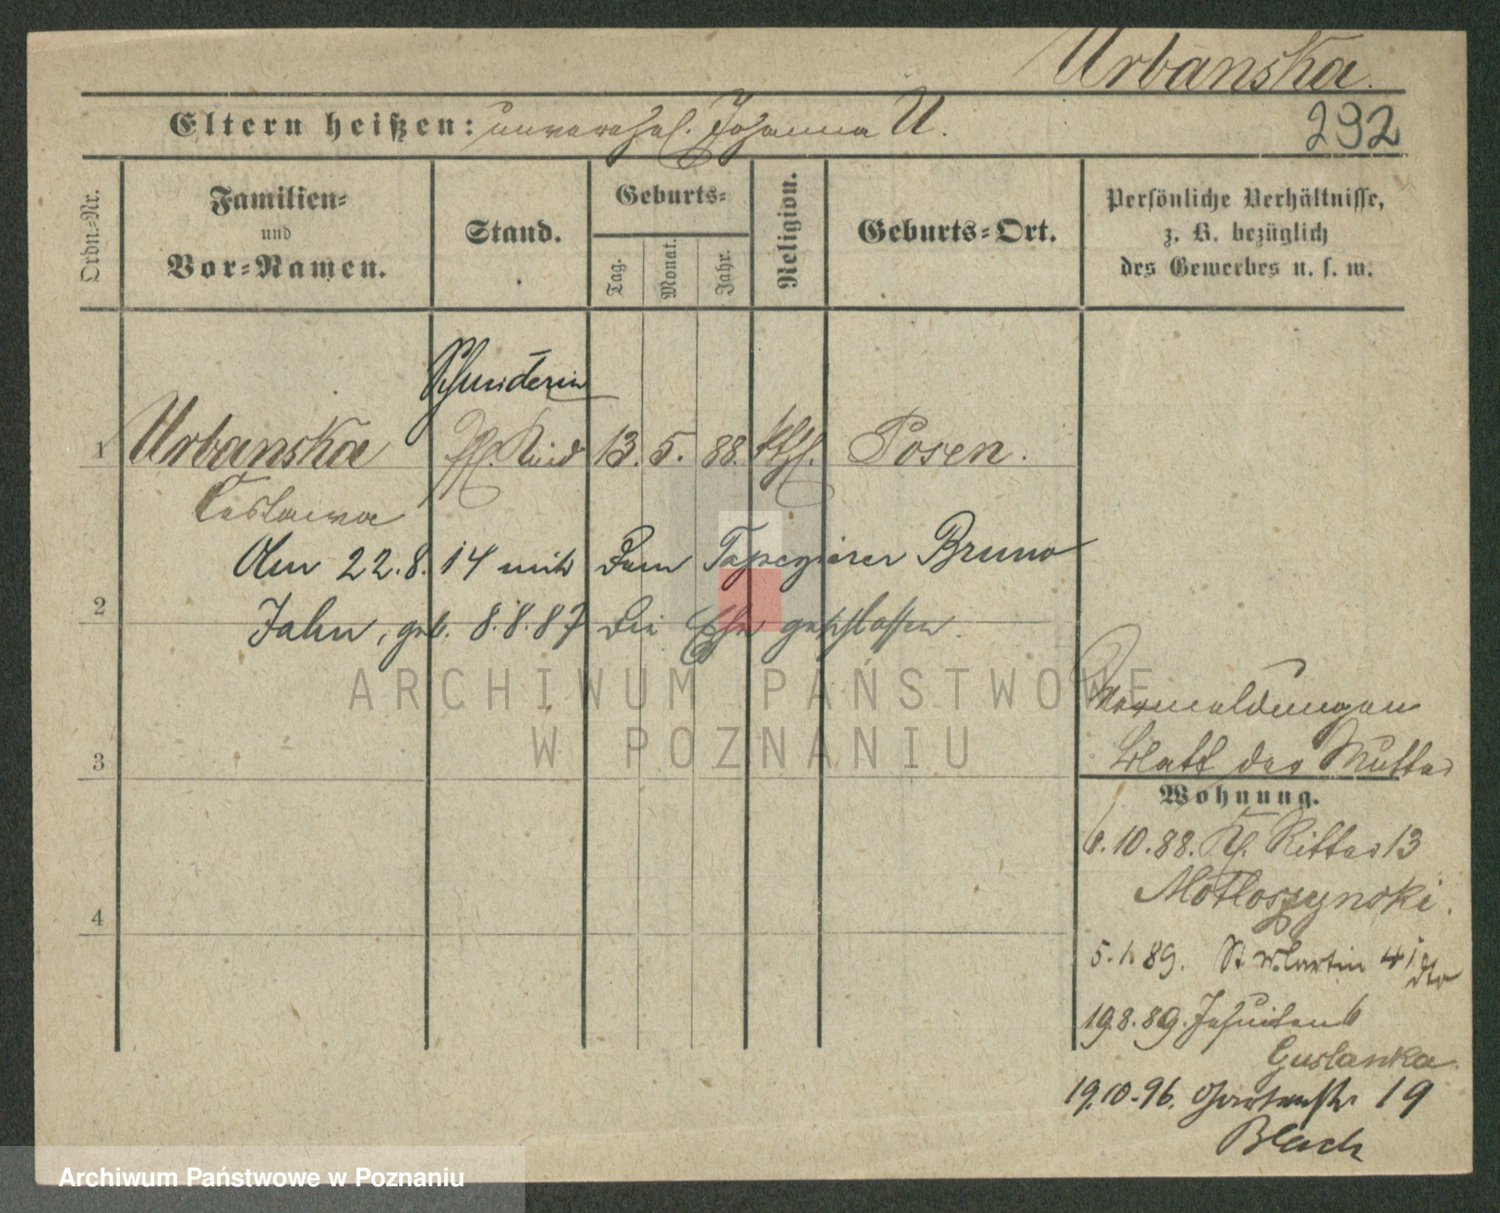 Urbanska.
Eltern heißen: unverehel. Johanna U.
292
Ordn.-Nr.
Familien-
und
Vor-Namen.
Stand.
Geburts-
Tag.
Monat.
Jahr.
Religion.
Geburts-Ort.
Persönliche Verhältnisse,
z. B. bezüglich
des Gewerbes u. s. w.
Schneiderin
1 Urbanska Pfl. Kind 13. 5. 88. kth. Posen.
Am 22.8.14 mit dem Tapezierer Bruno
2
Jahn, geb. 8.8.87 die Ehe geschlossen.
ARCHIWUM PAŃSTWOWE
W POZNANIU
Vormeldungen
Blatt der Mutter
3
Wohnung.
6.10.88. Kl. Ritter 13
4
5.1.89. St. Martin 41
19.8.89. Jesuiten 6
19.10.96. Gartenstr 19
Blach
Archiwum Państwowe w Poznaniu